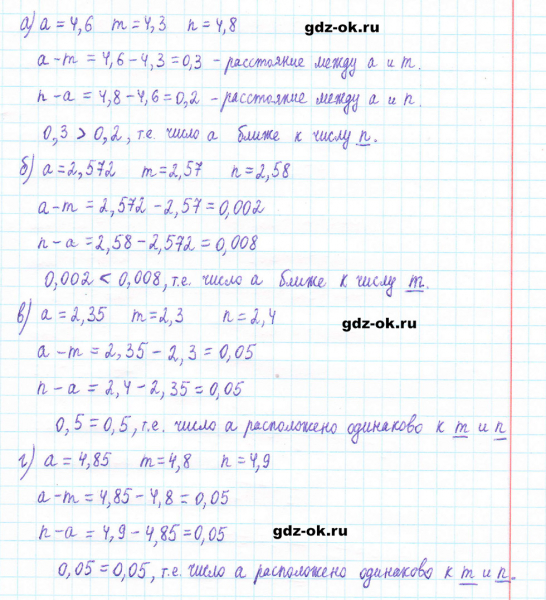 а) a = 4,6 m = 4,3 n = 4,8
gdz-ok.ru
a - m = 4,6 - 4,3 = 0,3 - расстояние между a и m.
n - a = 4,8 - 4,6 = 0,2 - расстояние между a и n.
0,3 > 0,2, т.е. число a ближе к числу n.
б) a = 2,572 m = 2,57 n = 2,58
a - m = 2,572 - 2,57 = 0,002
n - a = 2,58 - 2,572 = 0,008
0,002 < 0,008, т.е. число a ближе к числу m.
в) a = 2,35 m = 2,3 n = 2,4
gdz-ok.ru
a - m = 2,35 - 2,3 = 0,05
n - a = 2,4 - 2,35 = 0,05
0,5 = 0,5, т.е. число a расположено одинаково к m и n
г) a = 4,85 m = 4,8 n = 4,9
a - m = 4,85 - 4,8 = 0,05
n - a = 4,9 - 4,85 = 0,05
gdz-ok.ru
0,05 = 0,05, т.е. число a расположено одинаково к m и n.